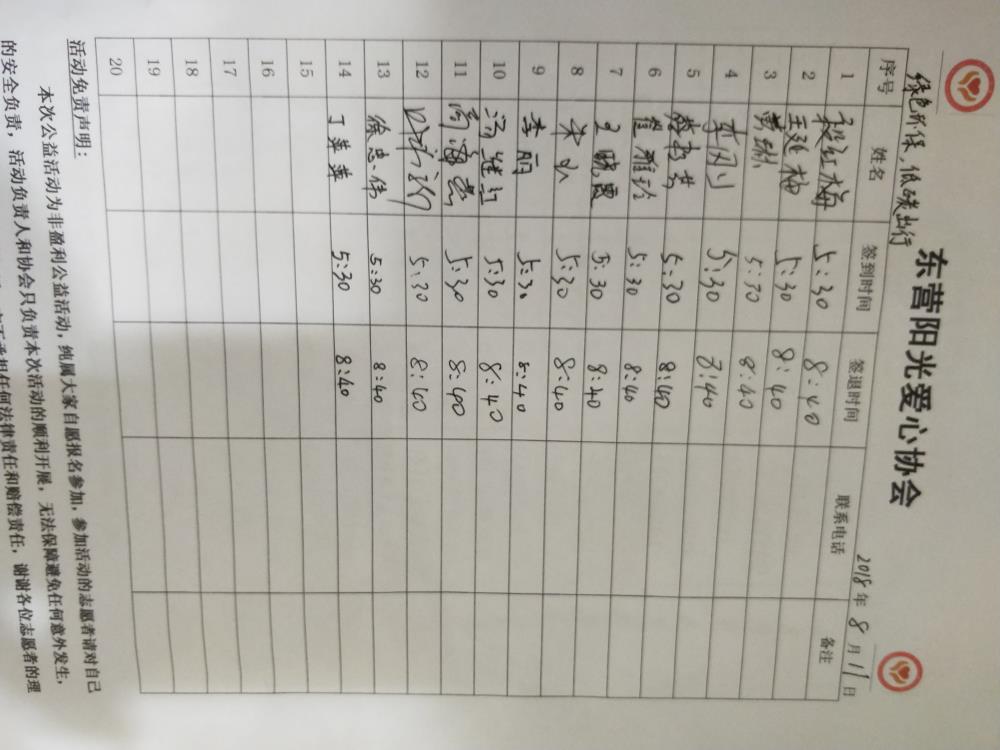 东营阳光爱心协会
绿色环保，低碳出行 2018年8月11日
序号 姓名 签到时间 签退时间 联系电话 备注
1 5:30 8:40
2 王延梅 5:30 8:40
3 5:30 8:40
4 李风川 5:30 8:40
5 5:30 8:40
6 崔雅玲 5:30 8:40
7 王晓霞 5:30 8:40
8 5:30 8:40
9 李丽 5:30 8:40
10 5:30 8:40
11 5:30 8:40
12 5:30 8:40
13 徐忠伟 5:30 8:40
14 丁萍萍 5:30 8:40
15
16
17
18
19
20
活动免责声明：
本次公益活动为非盈利公益活动，纯属大家自愿报名参加，参加活动的志愿者请对自己
的安全负责，活动负责人和协会只负责本次活动的顺利开展，无法保障避免任何意外发生，
不承担任何法律责任和赔偿责任，谢谢各位志愿者的理